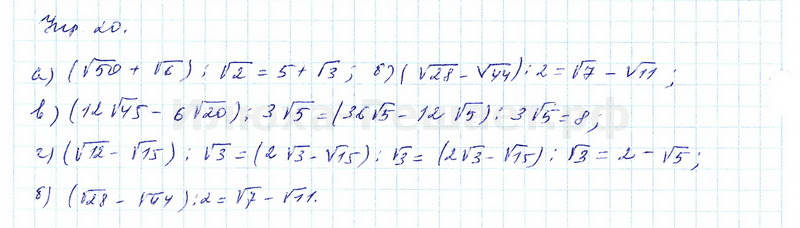 Упр 20.
а) (√50 + √6) : √2 = 5 + √3; б) (√28 - √44) : 2 = √7 - √11;
в) (12√45 - 6√20) : 3√5 = (36√5 - 12√5) : 3√5 = 8;
г) (√12 - √15) : √3 = (2√3 - √15) : √3 = (2√3 - √15) : √3 = 2 - √5;
б) (√28 - √44) : 2 = √7 - √11.